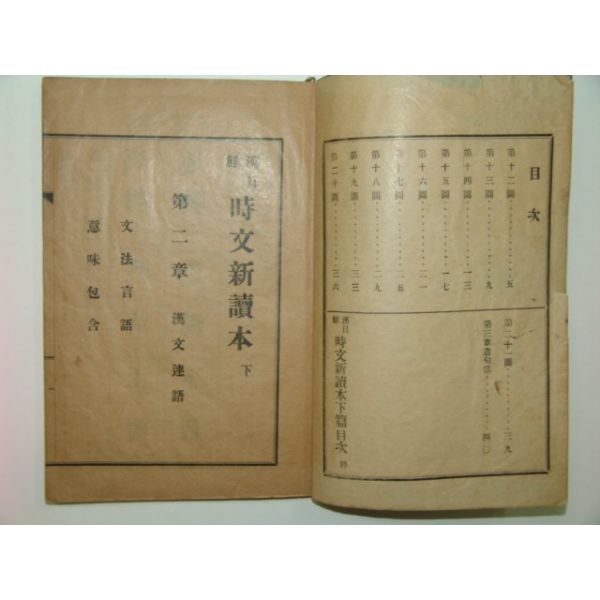 目次
第十二圖………五
第十三圖………九
第十四圖………一三
第十五圖………一七
第十六圖………二一
第十七圖………二五
第十八圖………二九
第十九圖………三三
第二十圖………三六
第二十一圖………三九
第三章造句法………四〇
漢日鮮 時文新讀本下篇目次 終
漢日鮮 時文新讀本 下
第二章 漢文連語
文法言語
意味包含